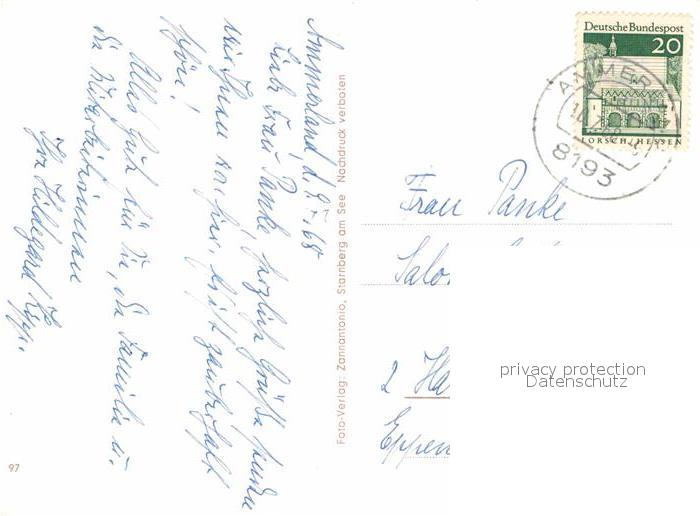 Ammerland, d. 9.7.68
Liebe Frau Panke, herzliche Grüße sendet
wir Ihnen von hier, es ist zauberhaft
schön!
Alles Gute für Sie, die Familie u.
die Mitarbeiterinnen
Ihre Hildegard
Foto-Verlag: Zannantonio, Starnberg am See Nachdruck verboten
97
Deutsche Bundespost
20
LORSCH/HESSEN
AMMERLAND
8193
Frau Panke
Salo
2 Ha
Eppen
privacy protection
Datenschutz